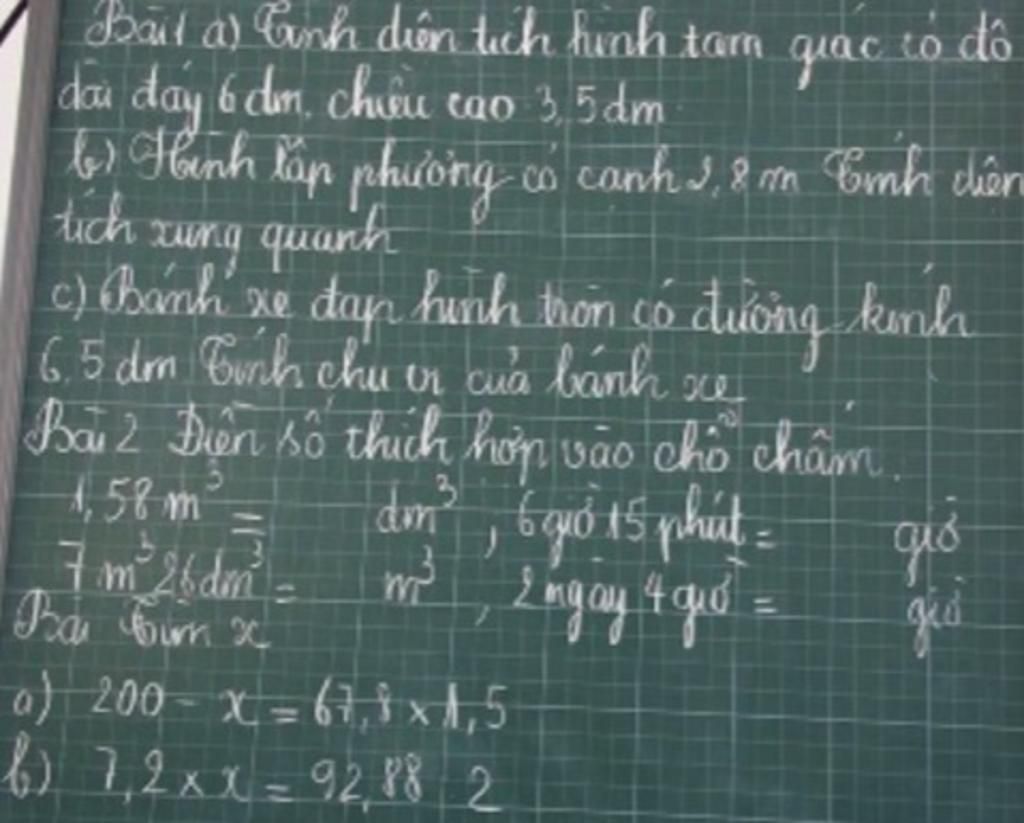 Bài 1 a) Tính diện tích hình tam giác có độ
dài đáy 6 dm, chiều cao 3,5 dm
b) Hình lập phương có cạnh 2,8 m Tính diện
tích xung quanh
c) Bánh xe đạp hình tròn có đường kính
6,5 dm Tính chu vi của bánh xe
Bài 2 Điền số thích hợp vào chỗ chấm.
1,58 m³ = dm³, 6 giờ 15 phút = giờ
7 m³ 26 dm³ = m³, 2 ngày 4 giờ = giờ
Bài Tìm x
a) 200 - x = 67,8 × 1,5
b) 7,2 × x = 92,88 2